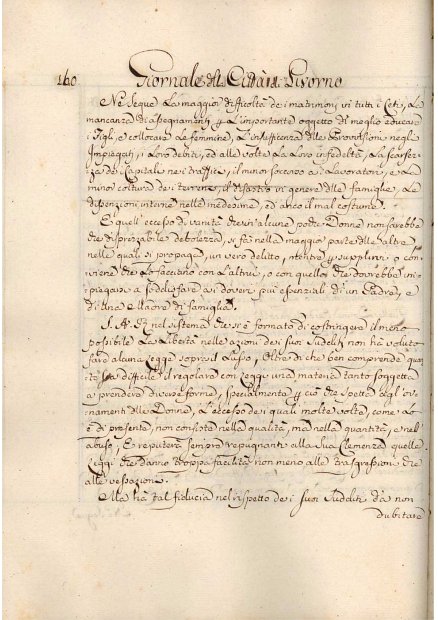 160 Giornale della Città di Livorno
Ne segue la maggior difficoltà de i matrimoni in tutti i Ceti, la
mancanza di assegnamenti p l'importante oggetto di meglio educare
i figli, e collocare le femmine, l'insufficienza delle Provvisioni negl'
Impiegati, i loro debiti, ed alle volte la loro infedeltà, la scarsez-
za dei Capitali nei traffici, il minor soccorso a i Lavoratori, e la
minor coltura dei terreni, il disastro in genere delle famiglie, le
dispenzioni interne nelle medesime, ed anco il mal costume.
E quell'eccesso di vanità che in alcune poche Donne non sarebbe
che disprezzabile debolezza, si fà nella maggior parte delle altre
nelle quali si propaga, un vero delitto, mentre p supplirvi o con-
viene che lo facciano con l'altrui, o con quello che dovrebbe im-
piegarsi a sodisfare ai doveri più essenziali di un Padre, e
di una Madre di famiglia.
S. A. R. nel sistema che si è formato di costringere il meno
possibile la libertà nelle azioni dei suoi Sudditi non ha voluto
fare alcuna legge sopra il Lusso, oltre di che ben comprende quan-
to sia difficile il regolare con leggi una materia tanto soggetta
a prendere diverse forme, specialmente p ciò che spetta agl'or-
namenti delle Donne, l'eccesso dei quali molte volte, come lo
è di presente, non consiste nella qualità, ma nella quantità, e nell'
abuso, e reputerà sempre repugnanti alla Sua Clemenza quelle
Leggi che danno troppa facilità non meno alle trasgressioni che
alle vessazioni.
Ma hà tal fiducia nel rispetto dei suoi Sudditi da non
dubitare